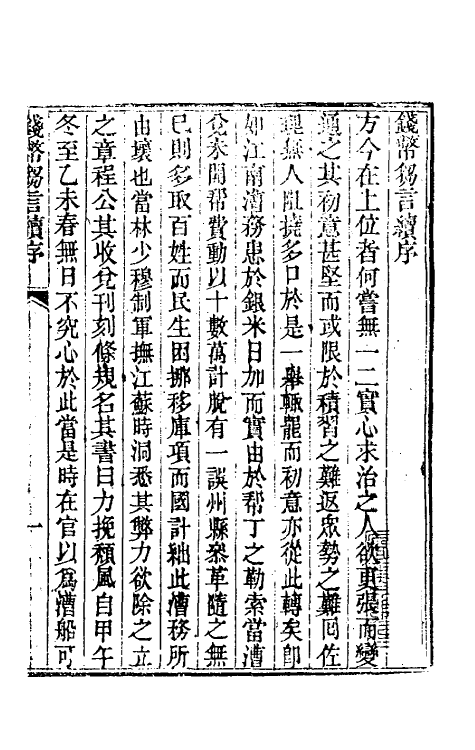 錢幣芻言續序
方今在上位者何嘗無一二實心求治之人欲更張而變
通之其初意甚堅而或限於積習之難返眾勢之難回佐
理無人阻撓多口於是一舉輒罷而初意亦從此轉矣即
如江南漕務患於銀米日加而實由於幫丁之勒索當漕
兌米開幫費動以十數萬計脫有一誤州縣參革隨之無
已則多取百姓而民生困挪移庫項而國計絀此漕務所
由壞也當林少穆制軍撫江蘇時洞悉其弊力欲除之立
之章程公其收兌刊刻條規名其書曰力挽頹風自甲午
冬至乙未春無日不究心於此當是時在官以為漕船可
錢幣芻言續序
一